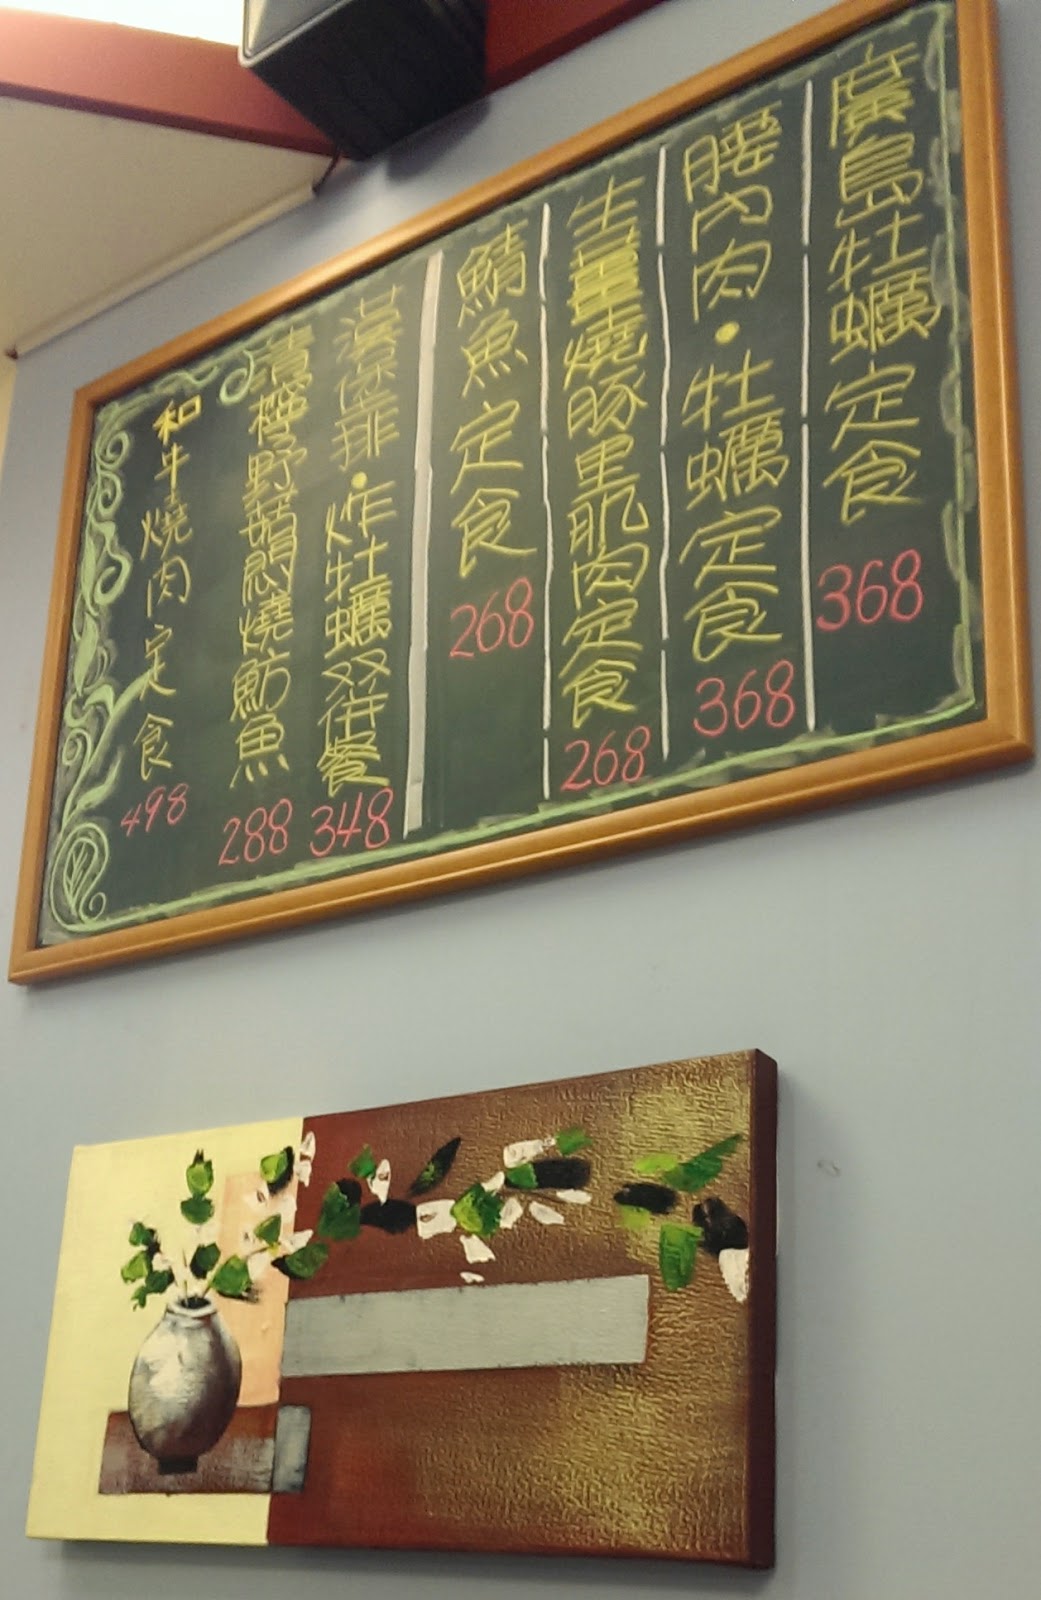 廣島牡蠣定食 368
腰內肉·牡蠣定食 368
生薑燒豚里肌肉定食 268
鯖魚定食 268
漢堡排·炸牡蠣双併餐 348
燒魴魚 288
和牛燒肉定食 498